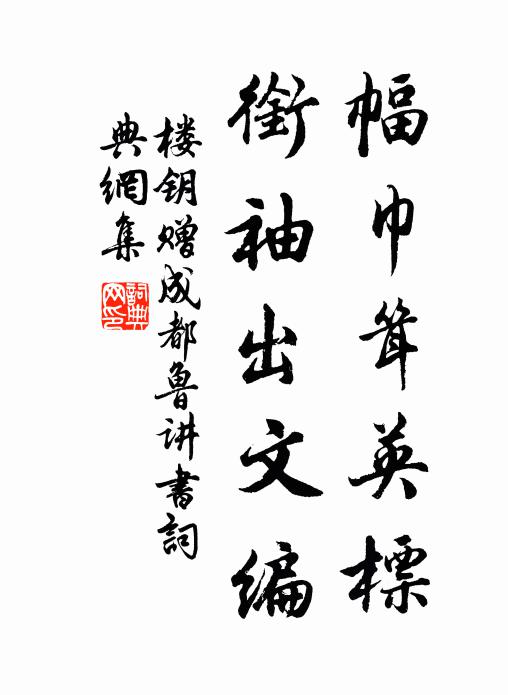 幅巾耸英標
銜袖出文编
楼钥赠成都鲁讲書詞
典網集
詞典
网印